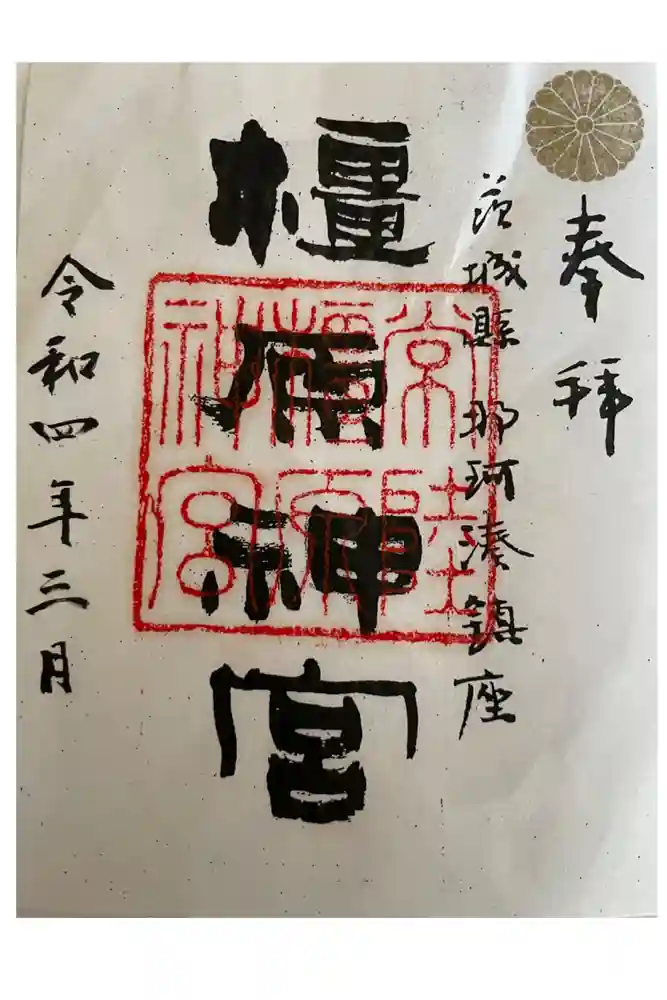 奉拜
茨城縣 那珂湊鎮座
橿原神宮
常陸
橿原
神宮
令和四年三月